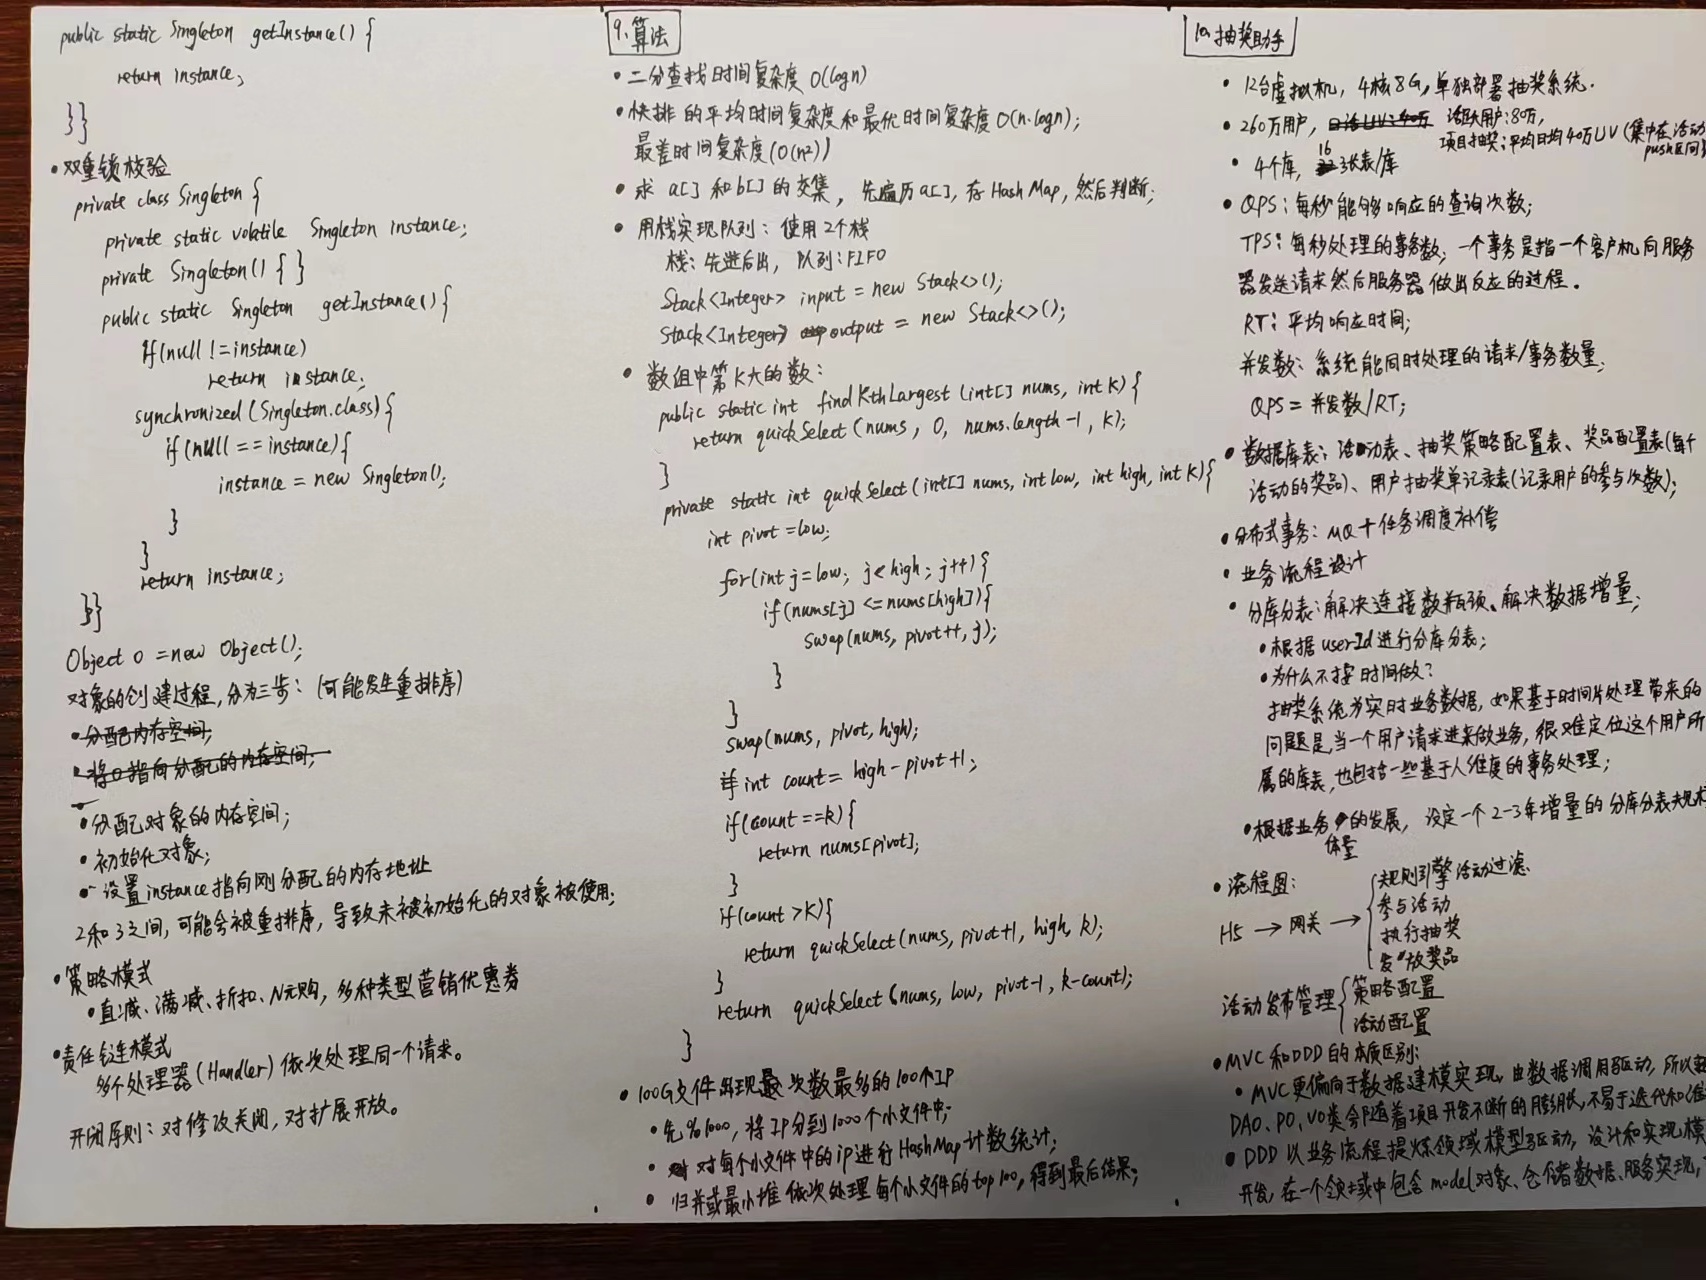 public static Singleton getInstance() {
return instance;
}}
• 双重锁校验
private class Singleton {
private static volatile Singleton instance;
private Singleton() { }
public static Singleton getInstance() {
if(null != instance)
return instance;
synchronized (Singleton.class) {
if (null == instance) {
instance = new Singleton();
}
}
return instance;
}}
Object o = new Object();
对象的创建过程,分为三步: (可能发生重排序)
• 分配内存空间;
• 将o指向分配的内存空间;
• 分配对象的内存空间;
• 初始化对象;
• 设置instance指向刚分配的内存地址
2和3之间,可能会被重排序,导致未被初始化的对象被使用;
• 策略模式
• 直减、满减、折扣、N元购,多种类型营销优惠券
• 责任链模式
多个处理器(Handler)依次处理同一个请求。
开闭原则: 对修改关闭,对扩展开放。
9.算法
• 二分查找时间复杂度 O(logn)
• 快排的平均时间复杂度和最优时间复杂度O(n·logn);
最差时间复杂度(O(n²))
• 求 a[] 和 b[] 的交集, 先遍历a[], 存HashMap, 然后判断;
• 用栈实现队列: 使用2个栈
栈: 先进后出, 队列: FIFO
Stack<Integer> input = new Stack<>();
Stack<Integer> output = new Stack<>();
• 数组中第K大的数:
public static int findKthLargest (int[] nums, int K) {
return quickSelect (nums, 0, nums.length-1, K);
}
private static int quickSelect (int[] nums, int low, int high, int K) {
int pivot = low;
for(int j=low; j<high; j++) {
if(nums[j] <= nums[high]) {
swap(nums, pivot++, j);
}
}
swap(nums, pivot, high);
int count = high-pivot+1;
if(count ==k) {
return nums[pivot];
}
if(count >K) {
return quickSelect(nums, pivot+1, high, k);
}
return quickSelect(nums, low, pivot-1, k-count);
}
• 100G文件出现次数最多的100个IP
• 先%1000, 将IP分到1000个小文件中;
• 对每个小文件中的ip进行HashMap计数统计;
• 归并或最小堆依次处理每个小文件的top100, 得到最后结果;
10.抽奖助手
• 12台虚拟机, 4核8G, 单独部署抽奖系统.
• 260万用户, 日活UV:40万 活跃用户:80万,
项目抽奖: 平均日均40万UV (集中在活动
push区间
• 4个库, 16张表/库
• QPS: 每秒能够响应的查询次数;
TPS: 每秒处理的事务数; 一个事务是指一个客户机向服务
器发送请求然后服务器做出反应的过程。
RT: 平均响应时间;
并发数: 系统能同时处理的请求/事务数量;
QPS = 并发数/RT;
• 数据库表: 活动表、抽奖策略配置表、奖品配置表(每个
活动的奖品)、用户抽奖单记录表(记录用户的参与次数);
• 分布式事务: MQ + 任务调度补偿
• 业务流程设计
• 分库分表: 解决连接数瓶颈、解决数据增量;
• 根据userId进行分库分表;
• 为什么不按时间做?
抽奖系统为实时业务数据, 如果基于时间片处理带来的
问题是, 当一个用户请求进来做业务, 很难定位这个用户所
属的库表, 也包括一些基于人维度的事务处理;
• 根据业务体量的发展, 设定一个2-3年增量的分库分表规模
• 流程图:
H5 → 网关 →
规则引擎活动过滤
参与活动
执行抽奖
发放奖品
活动发布管理
策略配置
活动配置
• MVC和DDD的本质区别:
• MVC更偏向于数据建模实现, 由数据调用驱动, 所以
DAO、PO、VO类会随着项目开发不断的膨胀, 不易于迭代和
• DDD以业务流程提炼领域模型驱动, 设计和实现
开发, 在一个领域中包含model对象、仓储数据、服务实现,